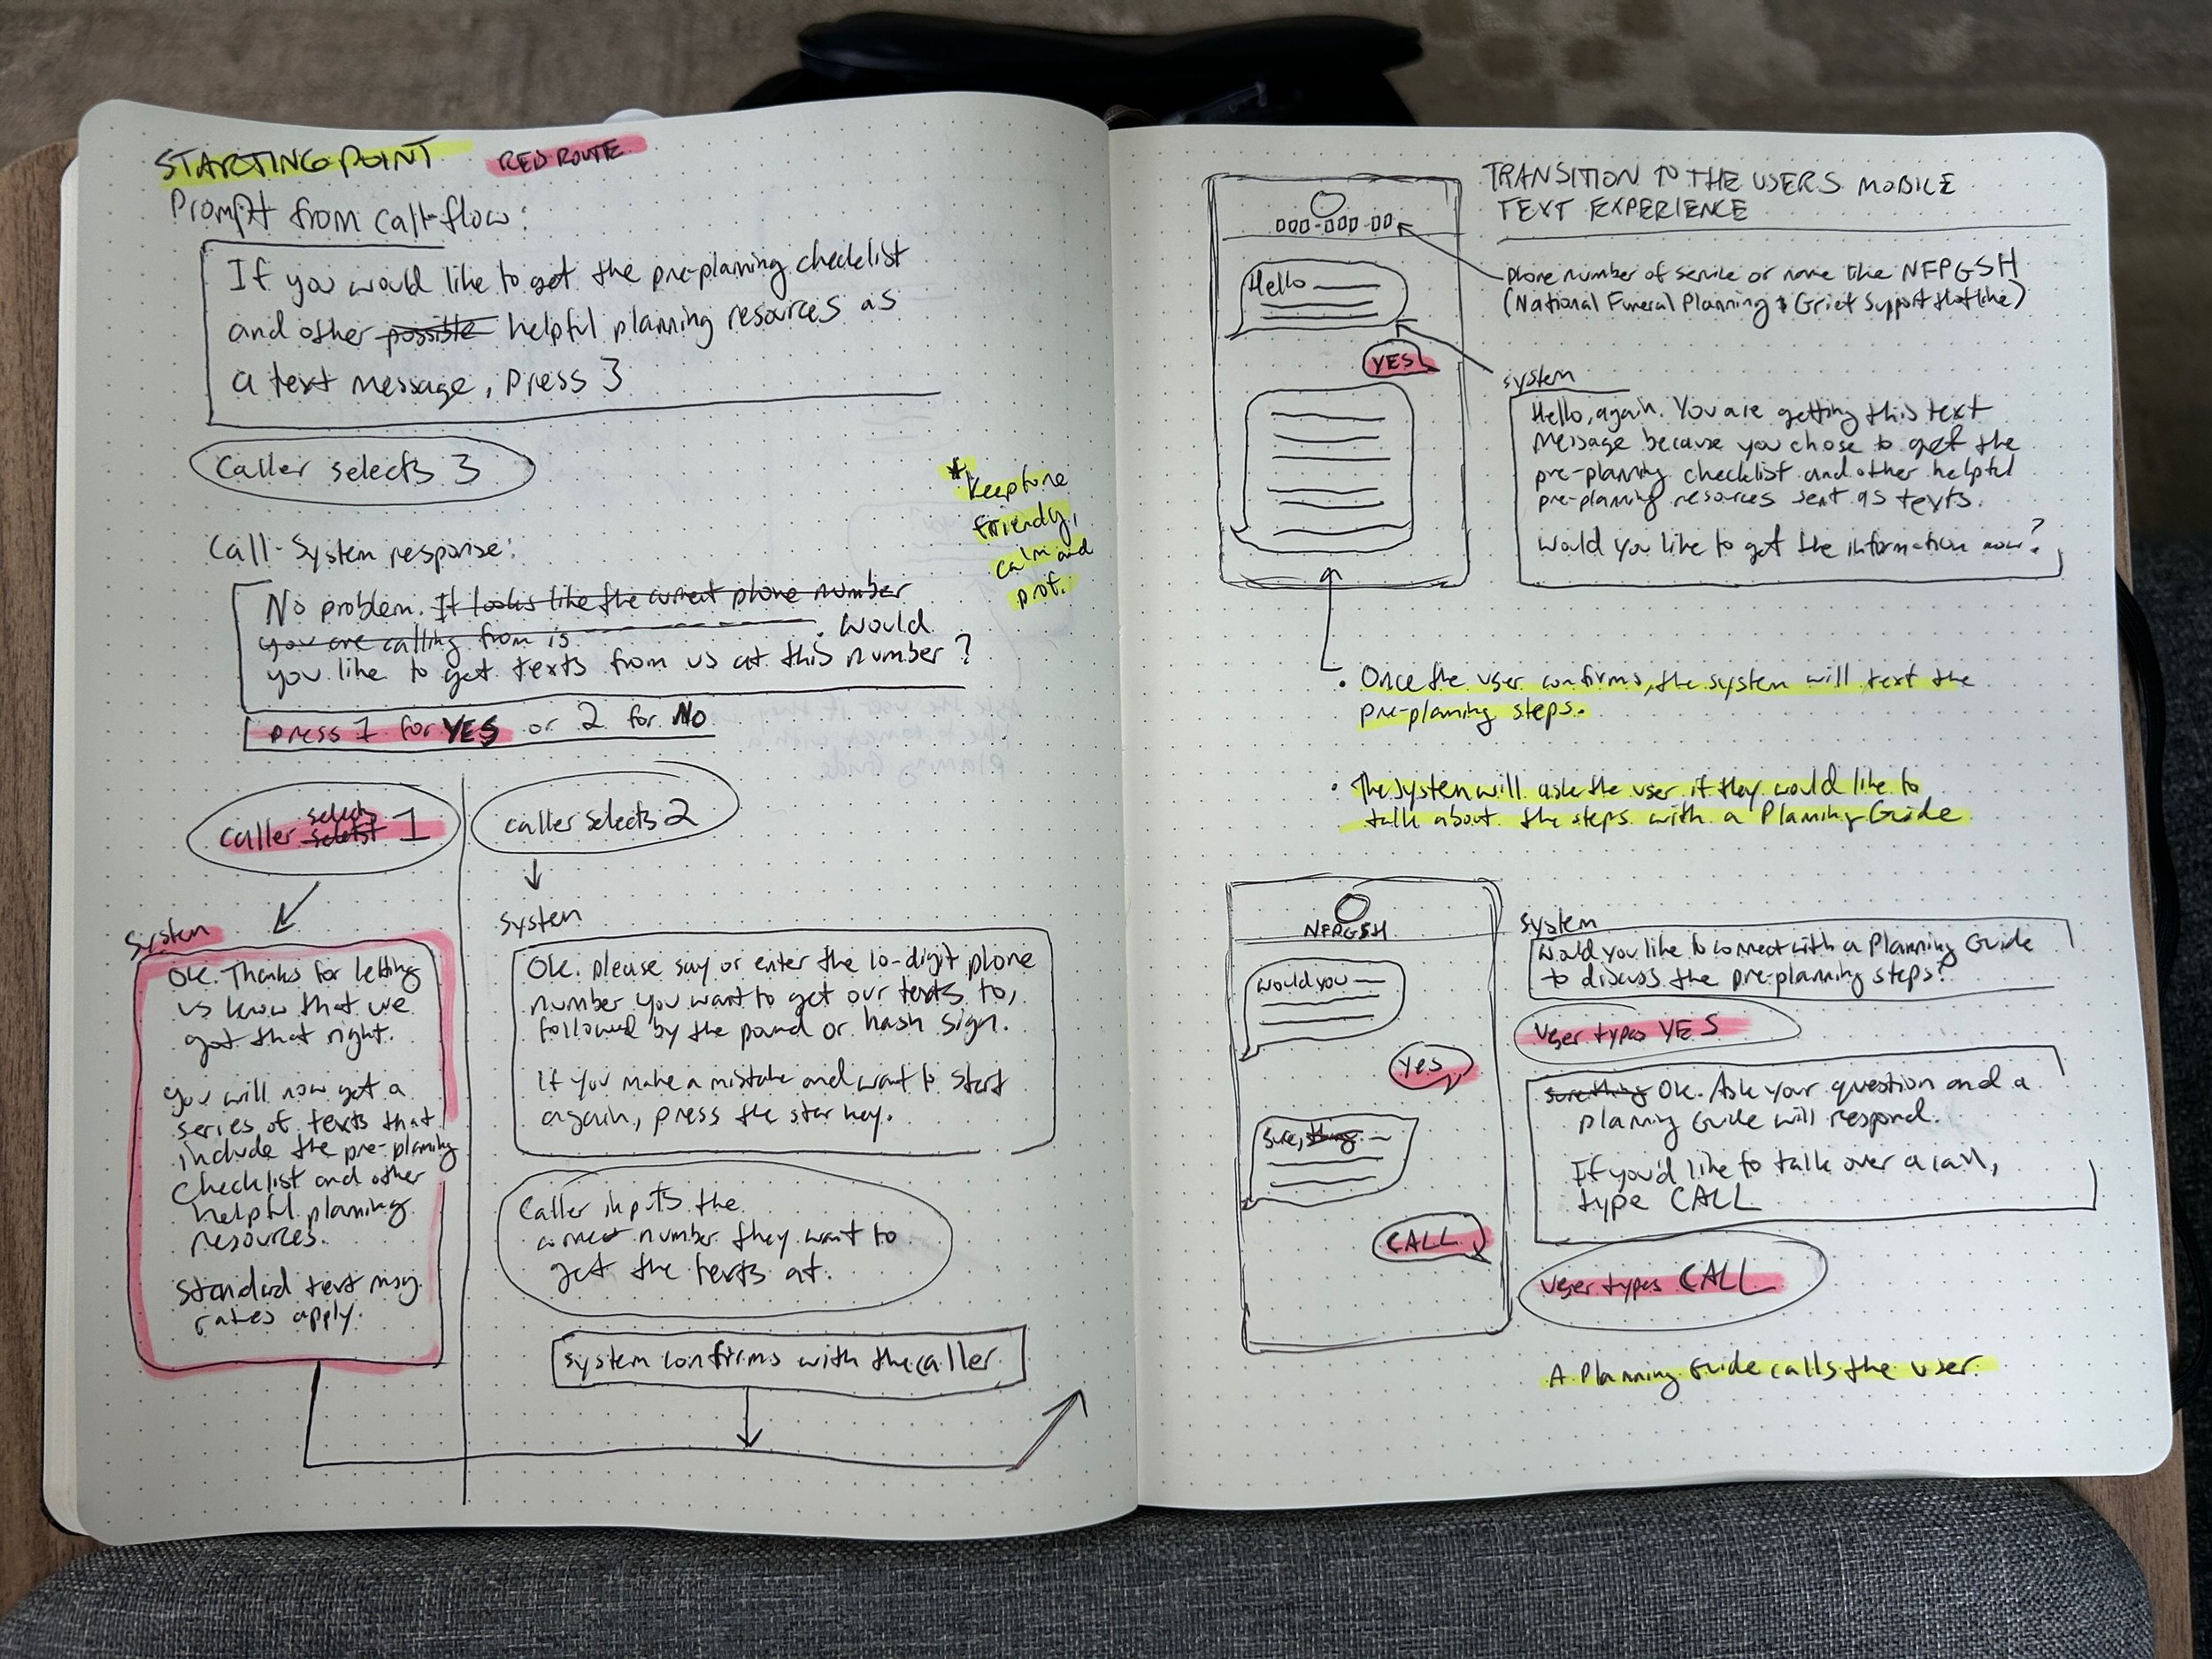 STARTING POINT RED ROUTE
Prompt from call-flow:
If you would like to get the pre-planning checklist
and other possible helpful planning resources as
a text message, press 3
Caller selects 3
* Keep tone
friendly,
calm and
prof.
Call-System response:
No problem. It looks like the current phone number
you are calling from is . Would
you like to get texts from us at this number?
press 1 for YES or 2 for NO
selects
caller 1
caller selects 2
System
Ok. Thanks for letting
us know that we
got that right.
you will now get a
series of texts that
include the pre-planning
checklist and other
helpful planning
resources.
Standard text msg
rates apply.
System
Ok. please say or enter the 10-digit phone
number you want to get our texts to,
followed by the pound or hash sign.
If you make a mistake and want to start
again, press the star key.
Caller inputs the
correct number they want to
get the texts at.
system confirms with the caller
TRANSITION TO THE USERS MOBILE
TEXT EXPERIENCE
000-000-00
phone number of service or name like NFPGSH
(National Funeral Planning & Grief Support Hotline)
Hello
YES
system
Hello, again. You are getting this text
message because you chose to get the
pre-planning checklist and other helpful
pre-planning resources sent as texts.
Would you like to get the information now?
• Once the user confirms, the system will text the
pre-planning steps.
• The system will ask the user if they would like to
talk about the steps with a Planning Guide
NFPGSH
would you
yes
sure, thing
CALL
System
Would you like to connect with a Planning Guide
to discuss the pre-planning steps?
User types YES
sure thing Ok. Ask your question and a
planning Guide will respond.
If you'd like to talk over a call,
type CALL
User types CALL
A Planning Guide calls the user.